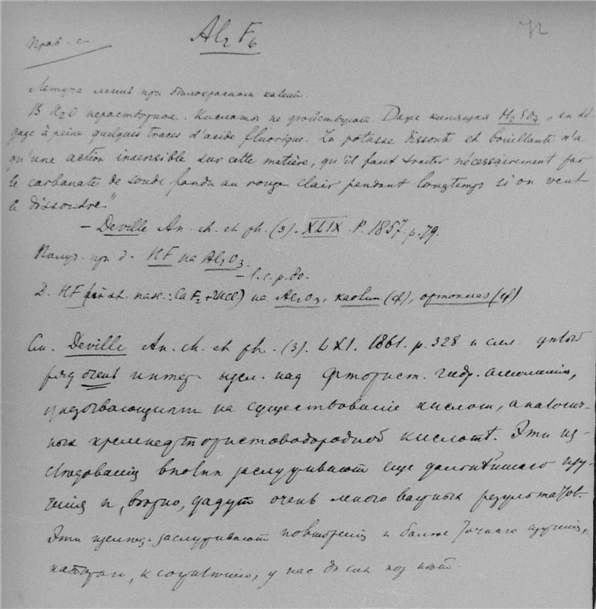 Al₂ F₆
72
Летуча лишь при белокрасном калении.
В H₂O нерастворим. Кислоты не действуют. Даже кипящая H₂SO₄ „en dé-
gage à peine quelques traces d'acide fluorique. La potasse dissoute et bouillante n'a
qu'une action insensible sur cette matière, qu'il faut traiter nécessairement par
le carbonate de soude fondu au rouge clair pendant longtemps si on veut
le dissoudre"
— Deville An. ch. et ph. (3). XLIX. P. 1857 p. 79.
Получ. при д. HF на Al₂O₃.
— l. c. p. 80.
Д. HF на Al₂O₃, каолин
См. Deville An. ch. et ph. (3). LXI. 1861. p. 328 и след целый
ряд очень интер. исслед. над фторист. гидр. алюминия,
указывающих на существование кислот, аналогич-
ных кремнефтористоводородной кислоте. Эти ис-
следования вполне заслуживают еще дальнейшего изу-
чения и, верно, дадут очень много важных результатов.
Эти исслед. заслуживают повторения и более точного изучения,
которого, к сожалению, у нас до сих пор нет.